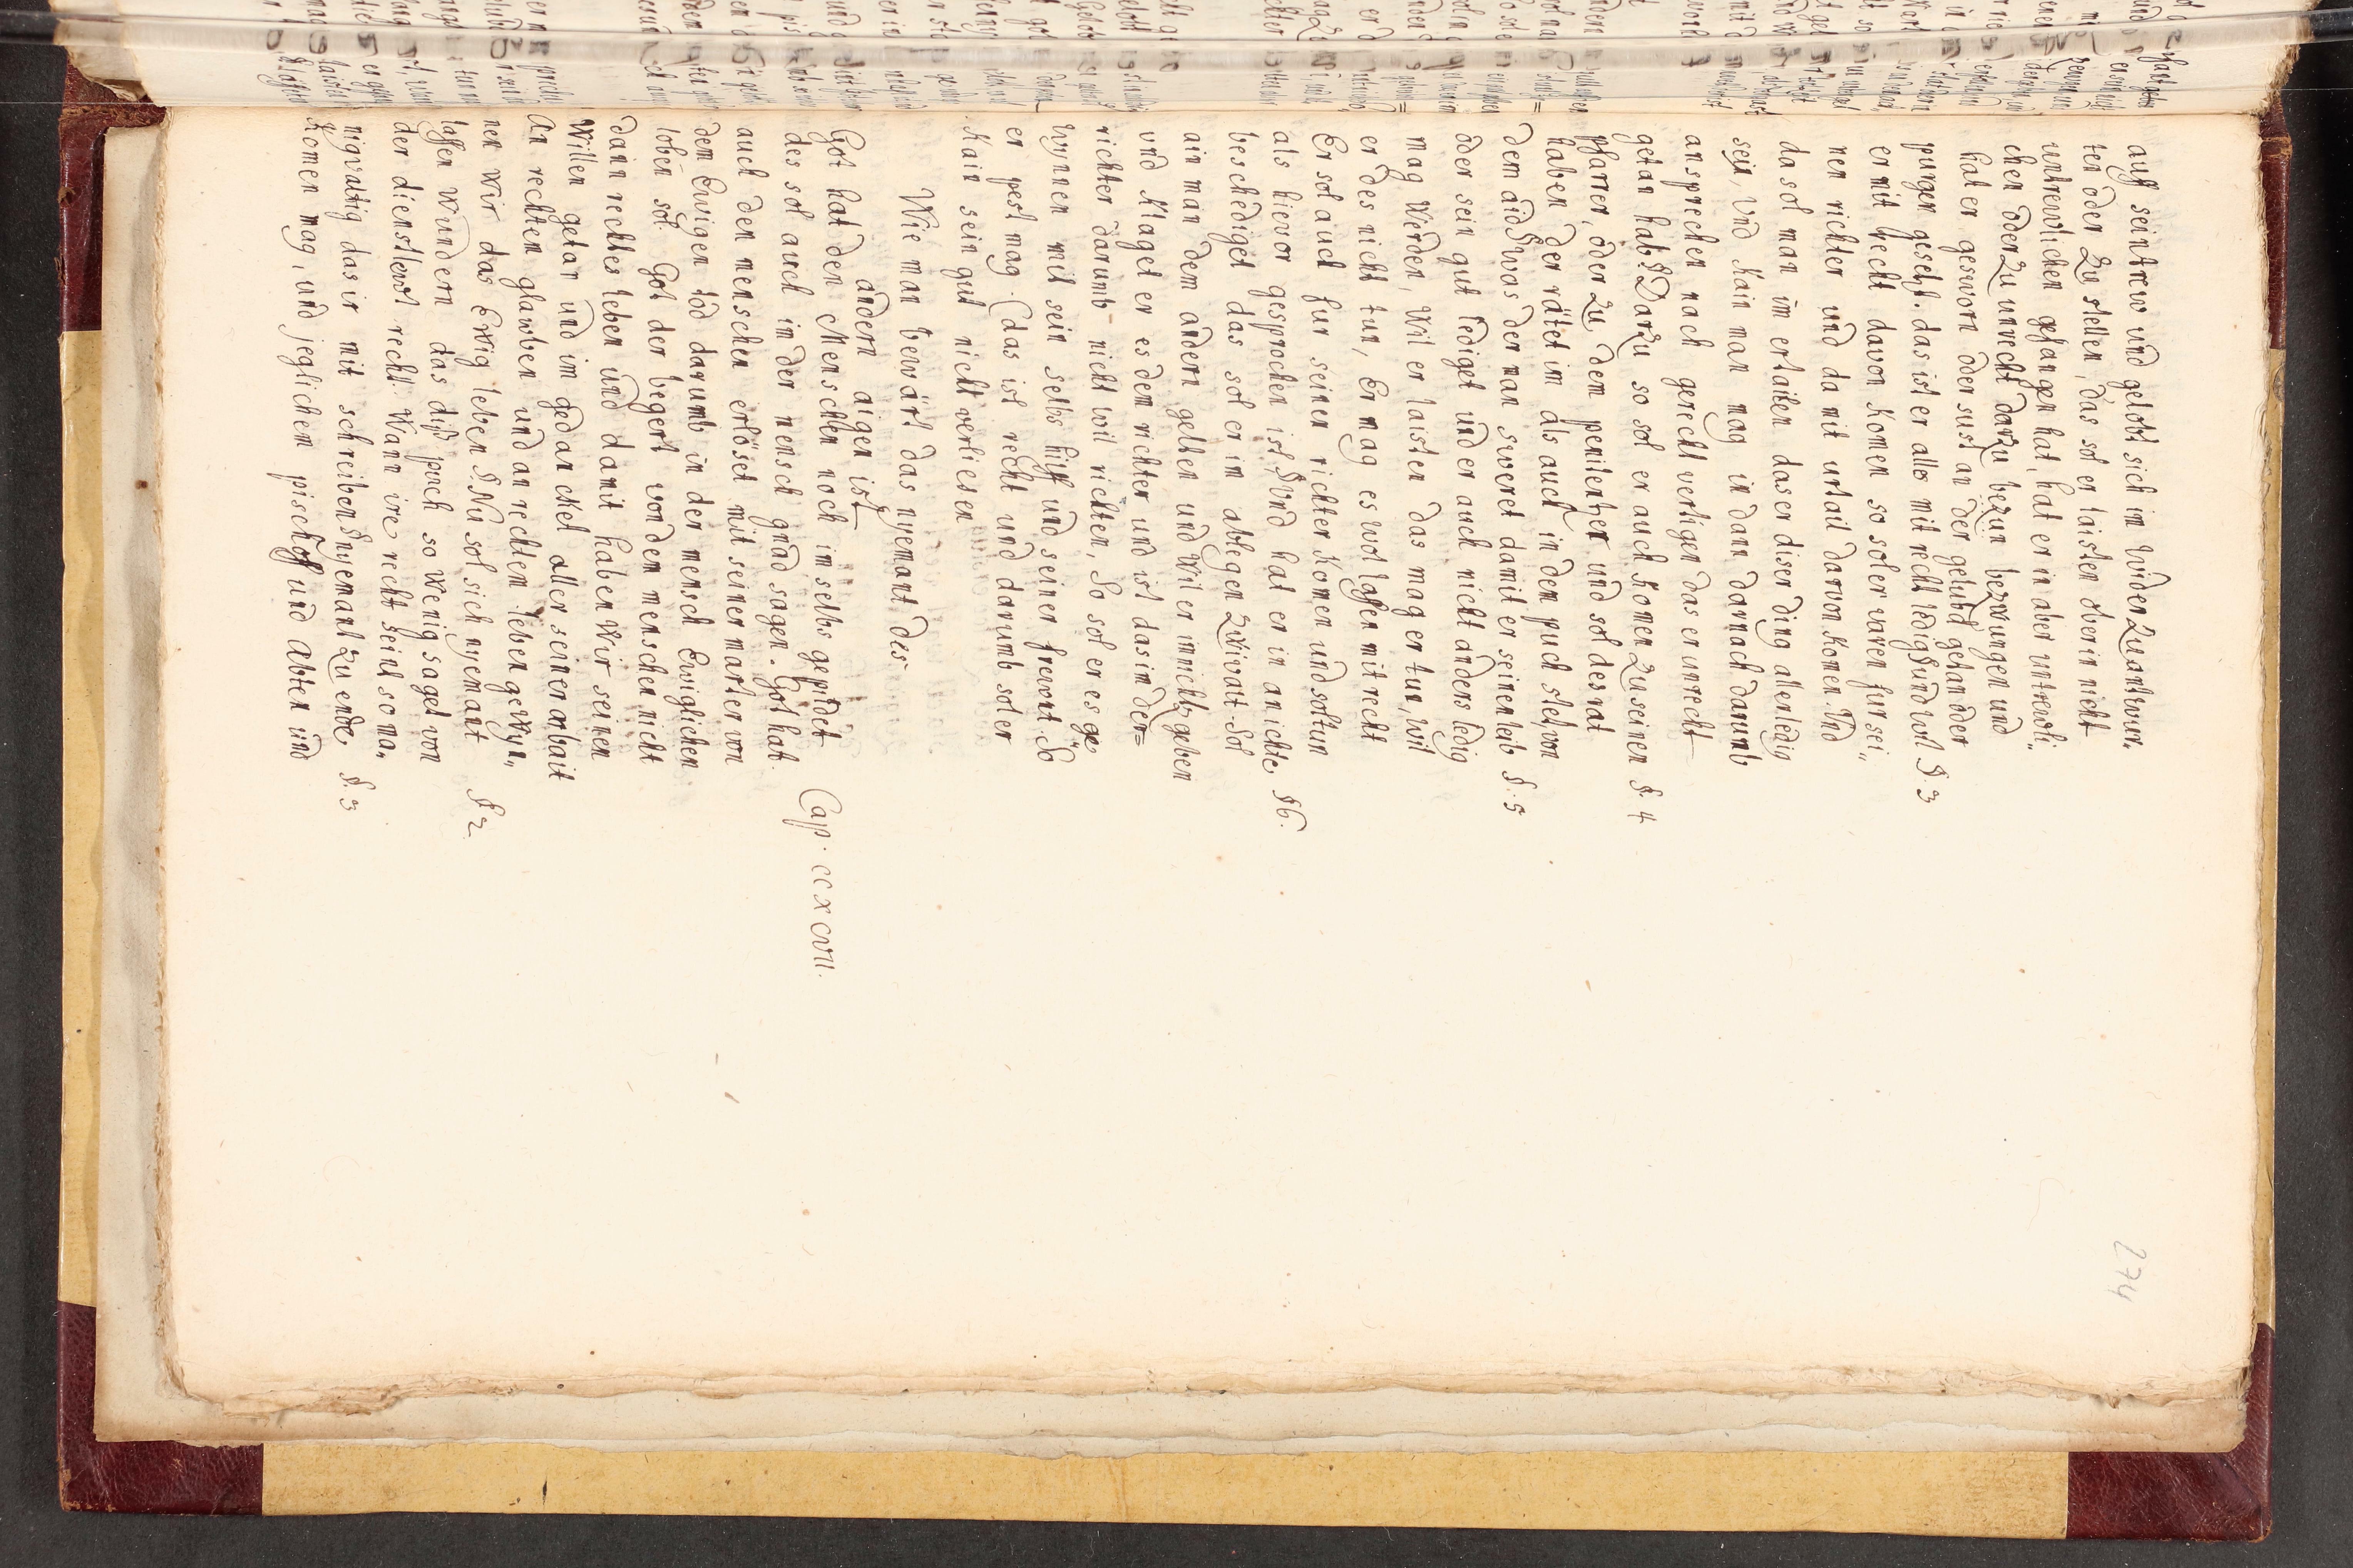 274
auff sein trew und gelobt sich im wider zu antwur„
ten oder zu stellen, das sol er laisten ober in nicht
untrewlichen gefangen hat, hat er in aber untrewli„
chen oder zu unrecht darzu bezün bezwungen und
hat er gesworn oder sust an der gelubd getan oder
purgen gesetzt. das ist er alles mit recht ledig § und wil §. 3
er mit recht davon komen so sol er varen fur sei„
nen richter und da mit urtail darvon komen. Und
da sol man im ertailen das er diser ding aller ledig
sein, Und kain man mag in dann darnach darumb
ansprechen nach gerecht vertigen das er unrecht
getan hab § Darzu so sol er auch komen zu seinen §. 4
pfarrer, oder zu dem penitenher und sol des rat
haben der rätet im als auch in dem puch stet, von
dem aid § was der man sweret damit er seinen leib §. 5
oder sein gut lediget und er auch nicht anders ledig
mag werden, wil er laisten das mag er tun, wil
er des nicht tun, Er mag es wol lassen mit recht
Er sol auch fur seinen richter komen und sol tun
als hievor gesprochen ist, § Und hat er in an ichte §. 6.
beschediget das sol er im ablegen zwivalt. Sol
ain man dem andern gelten und wil er im nichtz geben
und klaget er es dem richter und ist das im der=
richter darumb nicht wil richten, So sol er es ge
wynnen mit sein selbs hilff und seiner frewnt So
er pest mag. (das ist recht und darumb sol er
kain sein gut nicht verliesen
Wie man bewärt das nyemant des
andern aigen ist
Got hat den Menschen noch im selbs gepildet Cap. ccxcvii.
des sol auch im der mensch gnad sagen. Got hat
auch den menschen erlöset mit seiner marter von
dem Ewigen tod darumb in der mensch Ewiglichen
loben sol. Got der begert von dem menschen nicht
dann rechtes leben und damit haben wir seinen
willen getan und im gedancket aller seiner arbait
An rechten glawben und an rechtem leben gewyn„
nen wir das Ewig leben §. Nu sol sich nyemant §. 2.
lassen wundern das diß puch so wenig saget von
der dienstlewt recht. Wann ire recht seint so ma„
nigvaltig das ir mit schreiben § nyemant zu ende §. 3
komen mag, und jeglichem pischoff und Abten und